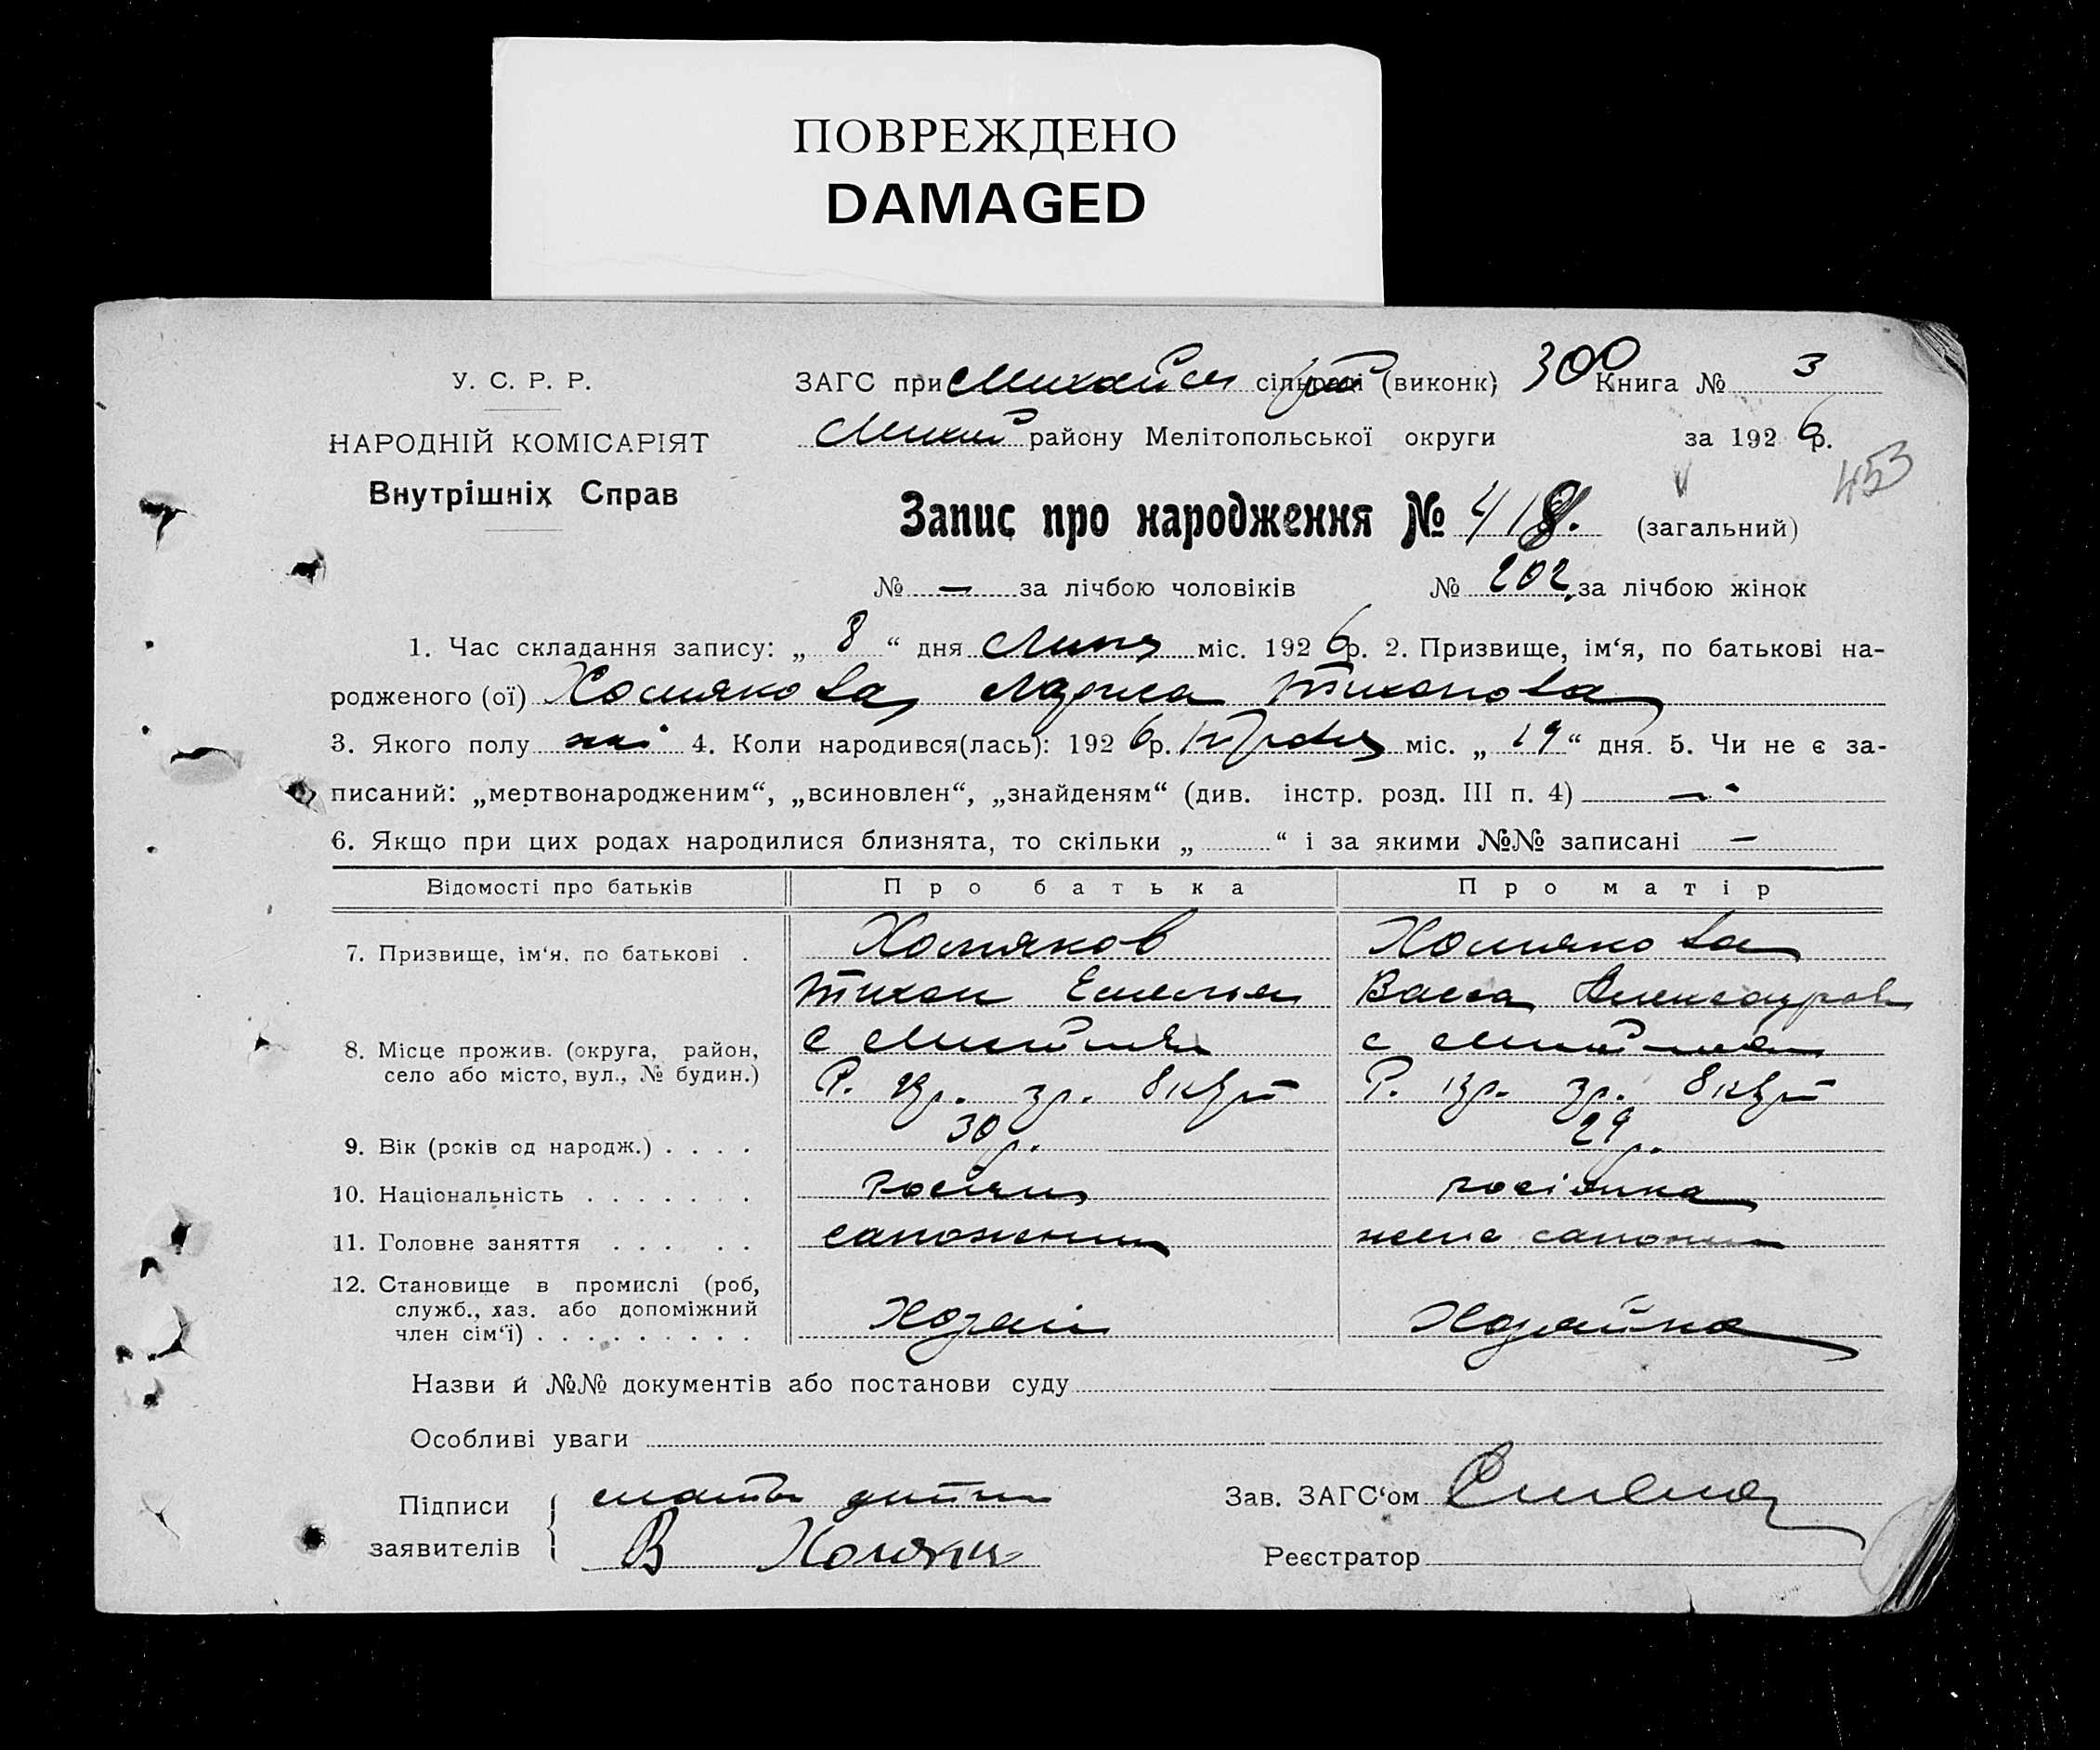 ПОВРЕЖДЕНО
DAMAGED
У. С. Р. Р.
НАРОДНІЙ КОМІСАРІЯТ
Внутрішніх Справ
ЗАГС при сільраді (виконк) 300 Книга № 3
району Мелітопольської округи за 1926 р.
453
Запис про народження № 418. (загальний)
№ — за лічбою чоловіків № 202 за лічбою жінок
1. Час складання запису: „ 8 “ дня Липня міс. 1926 р. 2. Призвище, ім‘я, по батькові на-
родженого (ої) Хомякова Лариса Тихонова
3. Якого полу жі 4. Коли народився(лась): 1926 р. міс. „ 19 “ дня. 5. Чи не є за-
писаний: „мертвонародженим“, „всиновлен“, „знайденям“ (див. інстр. розд. III п. 4) —
6. Якщо при цих родах народилися близнята, то скільки „ “ і за якими №№ записані —
Відомості про батьків Про батька Про матір
7. Призвище, ім‘я, по батькові . Хомяков Хомякова
Тихон Емельян Васса Александров
8. Місце прожив. (округа, район, с с
село або місто, вул., № будин.) Р. зр. Р. зр.
9. Вік (років од народж.) . . . . 30 р. 29 р.
10. Національність . . . . . . . Росіянин росіянка
11. Головне заняття . . . . . сапожник жена сапожн
12. Становище в промислі (роб,
служб., хаз. або допоміжний
член сім‘ї) . . . . . . . . . Хозяїн Хозяйка
Назви й №№ документів або постанови суду
Особливі уваги
Підписи мать дитини Зав. ЗАГС‘ом
заявителів В Хомяк Реєстратор